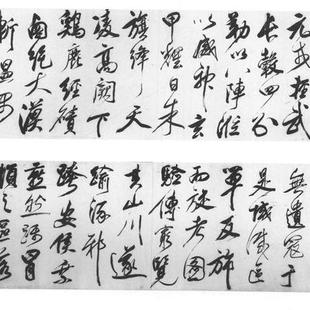 元戎輕武
長轂四分
勒以八陣蒞
以威神玄
甲耀日朱
旗絳天
凌高闕下
鷄鹿經磧
鹵絶大漠
斬溫禺
無遺寇于
是域滅區
單反旆
而旋考圖
驗傳窮覽
其山川遂
踰涿邪
跨安侯乘
燕然躡冒
頓之區落